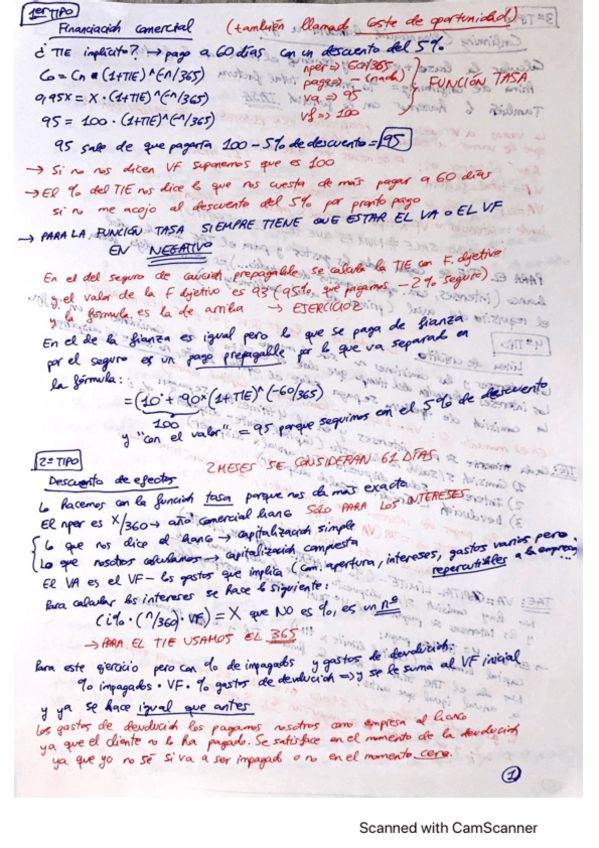 1er TIPO
Financiación comercial (también llamado coste de oportunidad)
¿TIE implícito? → pago a 60 días con un descuento del 5%
Co = Cn · (1+TIE)^(n/365) nper => 60/365
0,95X = X · (1+TIE)^(n/365) pago => – (nada)
95 = 100 · (1+TIE)^(n/365) va => 95
vf => 100
FUNCIÓN TASA
95 sale de que pagaría 100 - 5% de descuento = 95
→ Si no nos dicen VF suponemos que es 100
→ El % del TIE nos dice lo que nos cuesta de más pagar a 60 días
si no me acojo al descuento del 5% por pronto pago
→ PARA LA FUNCIÓN TASA SIEMPRE TIENE QUE ESTAR EL VA O EL VF
EN NEGATIVO
En el del seguro de caución prepagable se calcula la TIE con F. objetivo
y el valor de la F objetivo es 93 (95%, que pagamos - 2% seguro)
y la fórmula es la de arriba → EJERCICIO 2
En el de la fianza es igual pero lo que se paga de fianza
por el seguro es un pago prepagable por lo que va separado en
la fórmula:
= (10 + 90 x (1+TIE)^(-60/365)
100
y "con el valor" = 95 porque seguimos con el 5% de descuento
2º TIPO
2 MESES SE CONSIDERAN 61 DÍAS
Descuento de efectos
Lo hacemos con la función tasa porque nos da más exacto
El nper es X/360 → año comercial banc SÓLO PARA LOS INTERESES
Lo que nos dice el banco → capitalización simple
Lo que nosotros calculamos → capitalización compuesta
El VA es el VF – los gastos que implica (com. apertura, intereses, gastos varios pero
repercutibles a la empresa
Para calcular los intereses se hace lo siguiente:
(i% · (n/360) · VF) = X que NO es %, es un nº
→ PARA EL TIE USAMOS EL 365
Para este ejercicio pero con % de impagados y gastos de devolución:
% impagados · VF · % gastos de devolución => y se le suma al VF inicial
y ya se hace igual que antes
Los gastos de devolución los pagamos nosotros como empresa al banco
ya que el cliente no lo ha pagado. Se satisface en el momento de la devolución
ya que yo no sé si va a ser impagado o no en el momento cero.
1
Scanned with CamScanner